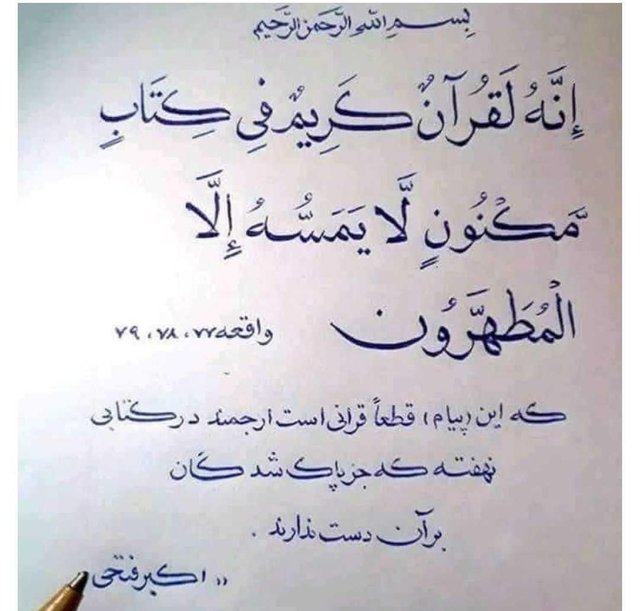 بِسمِ اللهِ الرَّحمنِ الرَّحیمِ
إِنَّهُ لَقُرآنٌ کَرِیمٌ فِی کِتَابٍ
مَّکنُونٍ لَّا یَمَسُّهُ إِلَّا
الْمُطَهَّرُونَ
واقعه ۷۷، ۷۸، ۷۹
که این (پیام) قطعاً قرآنی است ارجمند در کتابی
نهفته که جز پاک شدگان
بر آن دست ندارند.
,, اکبر فتحی